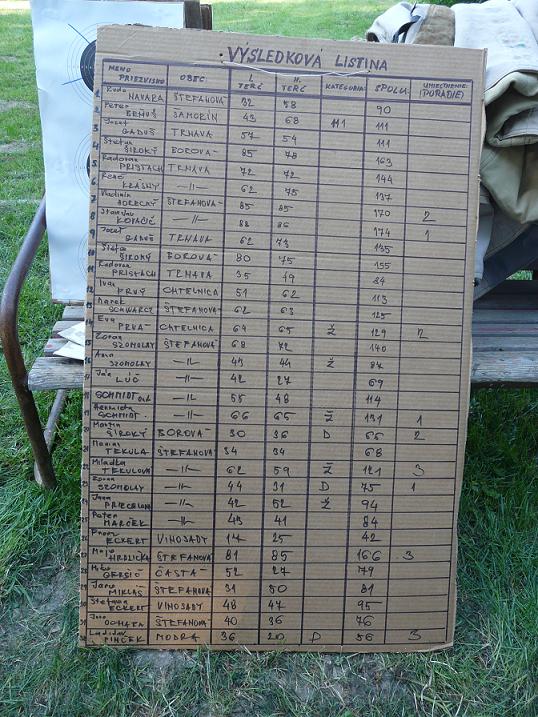 VÝSLEDKOVÁ LISTINA
MENO PRIEZVISKO OBEC: I. TERČ II. TERČ KATEGORIA SPOLU: UMIESTNENIE: (PORADIE)
NAVARA ŠTEFANOVÁ 32 58 90
Peter BEŇUŠ ŠAMORÍN 43 68 111
Jozef GADUŠ TRNAVA 57 54 111
Štefan ŠIROKÝ BOROVÁ 85 78 163
Radovan PRISTACH TRNAVA 72 72 144
KRASNY -11- 62 75 137
ŠTEFANOVÁ 85 85 170 2
KOVAČIČ -11- 88 86 174 1
Jozef GADUŠ TRNAVA 62 73 135
ŠIROKÝ BOROVÁ 80 75 155
Radovan PRISTACH TRNAVA 35 49 84
PRVÝ CHTELNICA 51 62 113
Marek SCHWARCZ ŠTEFANOVÁ 62 63 125
Eva PRVÁ CHTELNICA 64 65 Ž 129 2
Zoran SZOMOLAY ŠTEFANOVÁ 68 72 140
SZOMOLAY -11- 43 44 Ž 87
LÚČ -11- 42 27 69
SCHMIDT -11- 55 48 114
Henrieta SCHMIDT -11- 66 65 Ž 131 1
Martin ŠIROKÝ BOROVÁ 30 36 D 66 2
TEKULA ŠTEFANOVÁ 34 34 68
Miladka TEKULOVÁ -11- 62 59 Ž 121 3
SZOMOLAY -11- 44 31 D 75 1
Jana -11- 42 52 Ž 94
Peter MARČEK -11- 43 41 84
ECKERT VINOSADY 14 25 42
HRDLIČKA ŠTEFANOVÁ 81 85 166 3
GERŠIČ ČASTÁ 52 27 79
MIKLÁŠ ŠTEFANOVÁ 31 50 81
Štefan ECKERT VINOSADY 48 47 95
OCHABA ŠTEFANOVÁ 40 36 76
Ladislav PINČEK MODRA 36 20 D 56 3